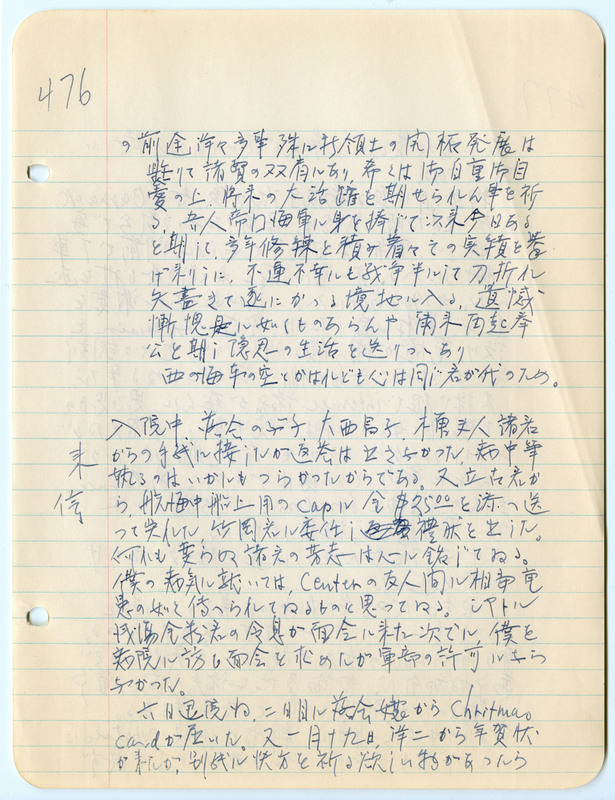 476
の前途洋々多事殊に新領土の開拓発展は
懸りて諸賢の双肩にあり、希くは御自重御自
愛の上、将来の大活躍を期せられん事を祈
る、吾人帝国海軍に身を捧じて以来今日ある
を期し、多年修練を積み着々その実績を挙
げ来りしに、不運不幸にも戦争半ばにて刀折れ
矢盡きて遂にかゝる境地に入る、遺憾
慚愧是に如くものあらんや 爾来再起奉
公を期し隠忍の生活を送りつゝあり
西の海 の空とかはれども心は同じ君が代のため。
来信
入院中、落合の 子、大西昌子、 夫人諸君
からの手紙に接したが返答は出さなかった、病中筆
執るのはいかにもつらかったからである。又立石君か
ら、航海中船上用のcapに金 25.00を添へ送
って呉れた、竹岡君に委任し 禮状を出した。
何れも変らぬ諸君の芳志は心に銘じてゐる。
僕の病気に就いては、Centerの友人間に相当重
患の如く傳へられてゐるものと思ってゐる。シヤトル
 君の令息が面会に来た次でに、僕を
病院に訪ひ面会を求めたが軍部の許可にならなかった。
六日退院ね、二日目に落合嬢からChristmas
cardが届いた。又一月十九日洋二から年賀状
が来たが、別紙に快方を祈る欲しい物があったら